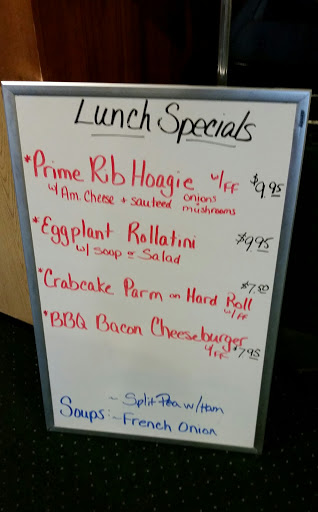 Lunch Specials
*Prime Rib Hoagie w/FF $9.95
w/ Am. Cheese + sauteed onions mushrooms
*Eggplant Rollatini $9.95
w/ Soup or Salad
*Crabcake Parm on Hard Roll $7.50
w/FF
*BBQ Bacon Cheeseburger
w/FF $7.95
~ Split Pea w/Ham
Soups: ~French Onion